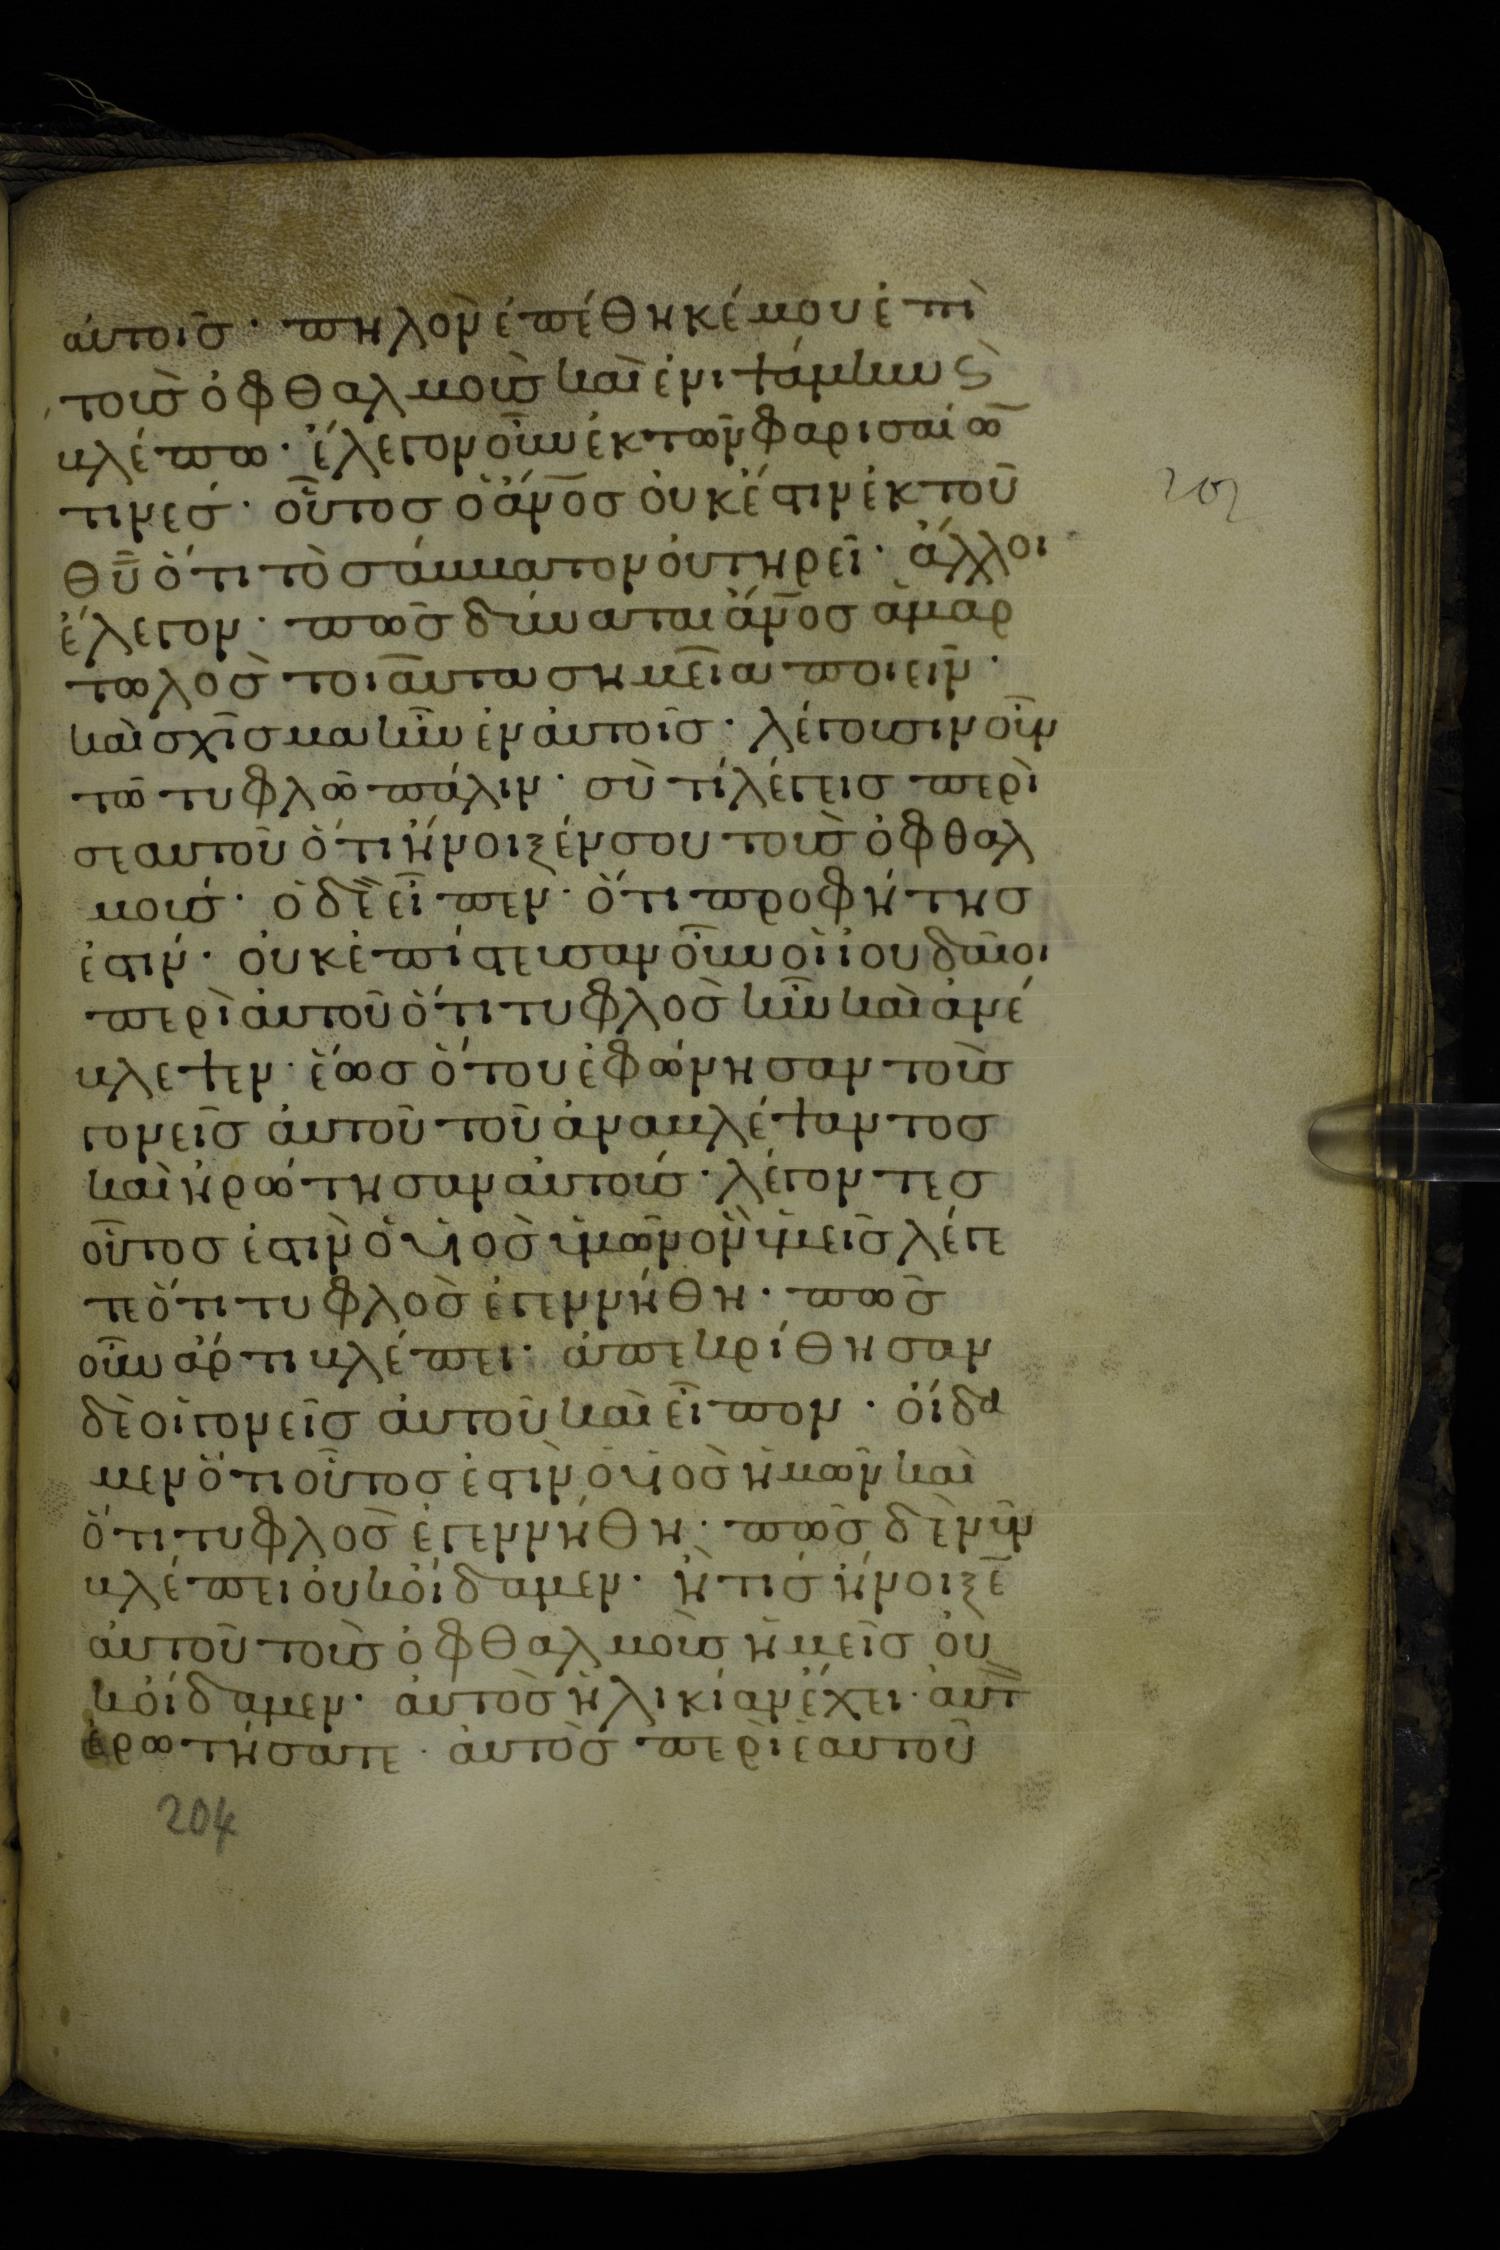 αυτοῖς· πηλὸν ἐπέθηκέ μου ἐπὶ
τοὺς ὀφθαλμοὺς καὶ ἐνιψάμην ϗ
βλέπω· ἔλεγον οὖν ἐκ τῶν φαρισαίω̅
τινες· οὗτος ὁ ἄν̅ος οὐκ ἔστιν ἐκ τοῦ
θ̅υ̅ ὅτι τὸ σάββατον οὐ τηρεῖ· ἄλλοι
ἔλεγον· πῶς δύναται ἄν̅ος ἁμαρ
τωλὸς τοιαῦτα σημεῖα ποιεῖν·
καὶ σχῖσμα ἦν ἐν αὐτοῖς· λέγουσιν οὖν
τῶ τυφλῶ πάλιν· σὺ τί λέγεις περὶ
σεαυτοῦ ὅτι ἤνοιξέν σου τοὺς ὀφθαλ
μούς· ὁ δὲ εἶπεν· ὅτι προφήτης
ἐστίν· οὐκ ἐπίστευσαν οὖν οἱ ἰουδαῖοι
περὶ αὐτοῦ ὅτι τυφλὸς ἦν καὶ ἀνέ
βλεψεν· ἕως ὅτου ἐφώνησαν τοὺς
γονεῖς αὐτοῦ τοῦ ἀναβλέψαντος
καὶ ἠρώτησαν αὐτούς· λέγοντες
οὗτος ἐστὶν ὁ υἱὸς ὑμῶν ὃν ὑμεῖς λέγε
τε ὅτι τυφλὸς ἐγεννήθη· πῶς
οὖν ἄρτι βλέπει· ἀπεκρίθησαν
δὲ οἱ γονεῖς αὐτοῦ καὶ εἶπον· οἴδα
μεν ὅτι οὗτος ἐστὶν ὁ υἱὸς ἡμῶν καὶ
ὅτι τυφλὸς ἐγεννήθη· πῶς δὲ νῦν
βλέπει οὐκ οἴδαμεν· ἢ τίς ἤνοιξε̅
αὐτοῦ τοὺς ὀφθαλμοὺς ἡμεῖς οὐ
κ οἴδαμεν· αὐτὸς ἡλικίαν ἔχει· αὐτ
ἐρωτήσατε· αὐτὸς περὶ ἑαυτοῦ
204